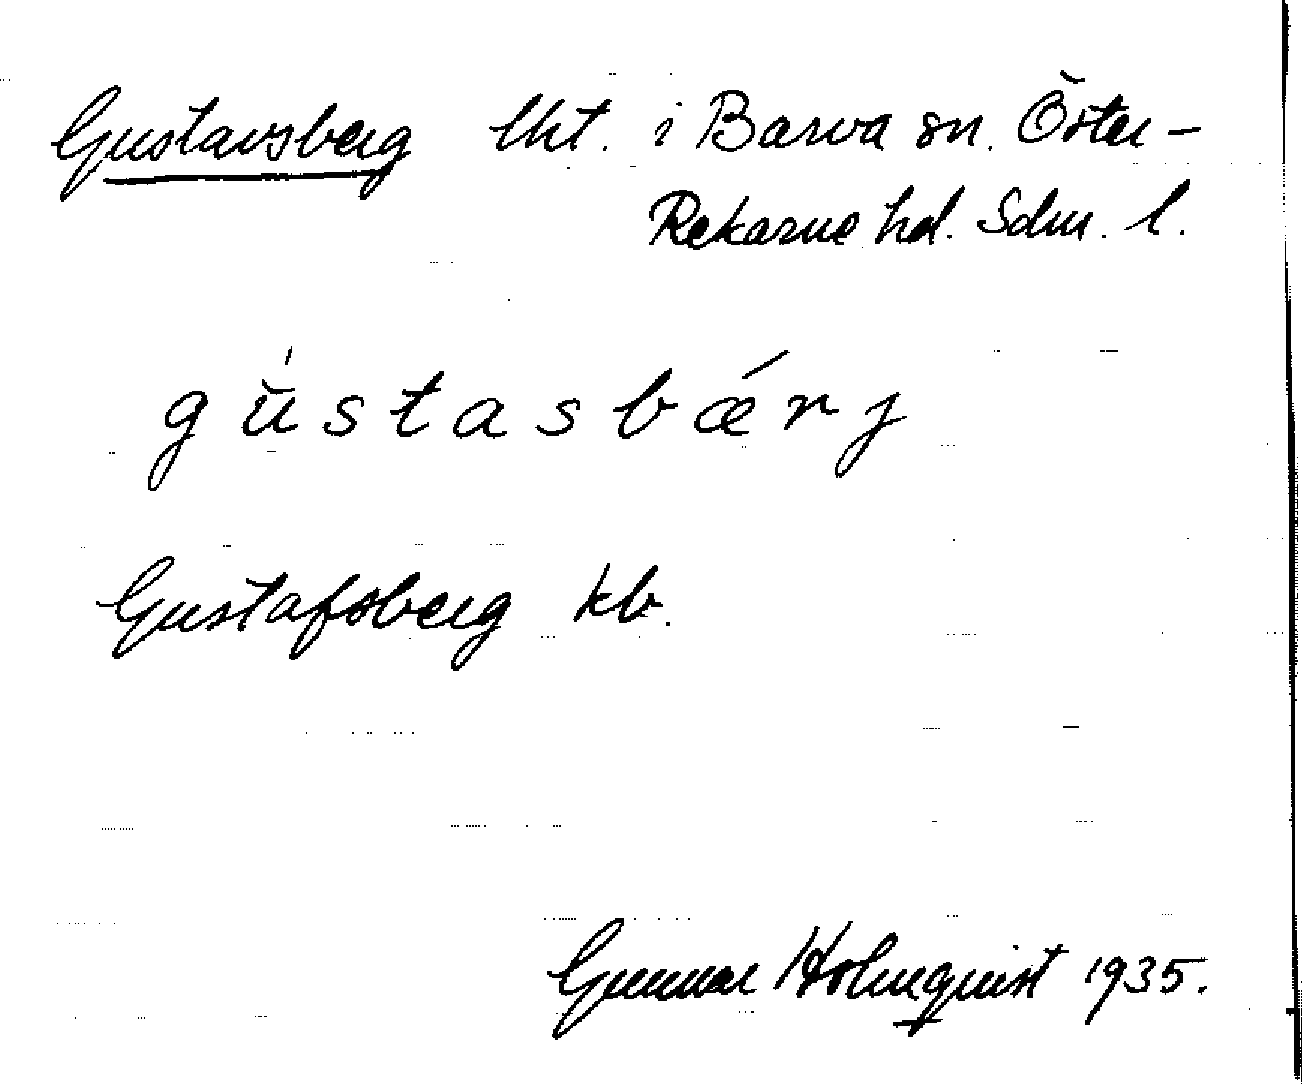 Gustavsberg lht. i Barva sn. Öster-
Rekarne hd. Sdm. l.
gŭ́stasbǽrj
Gustafsberg kb.
Gunnar Holmquist 1935.